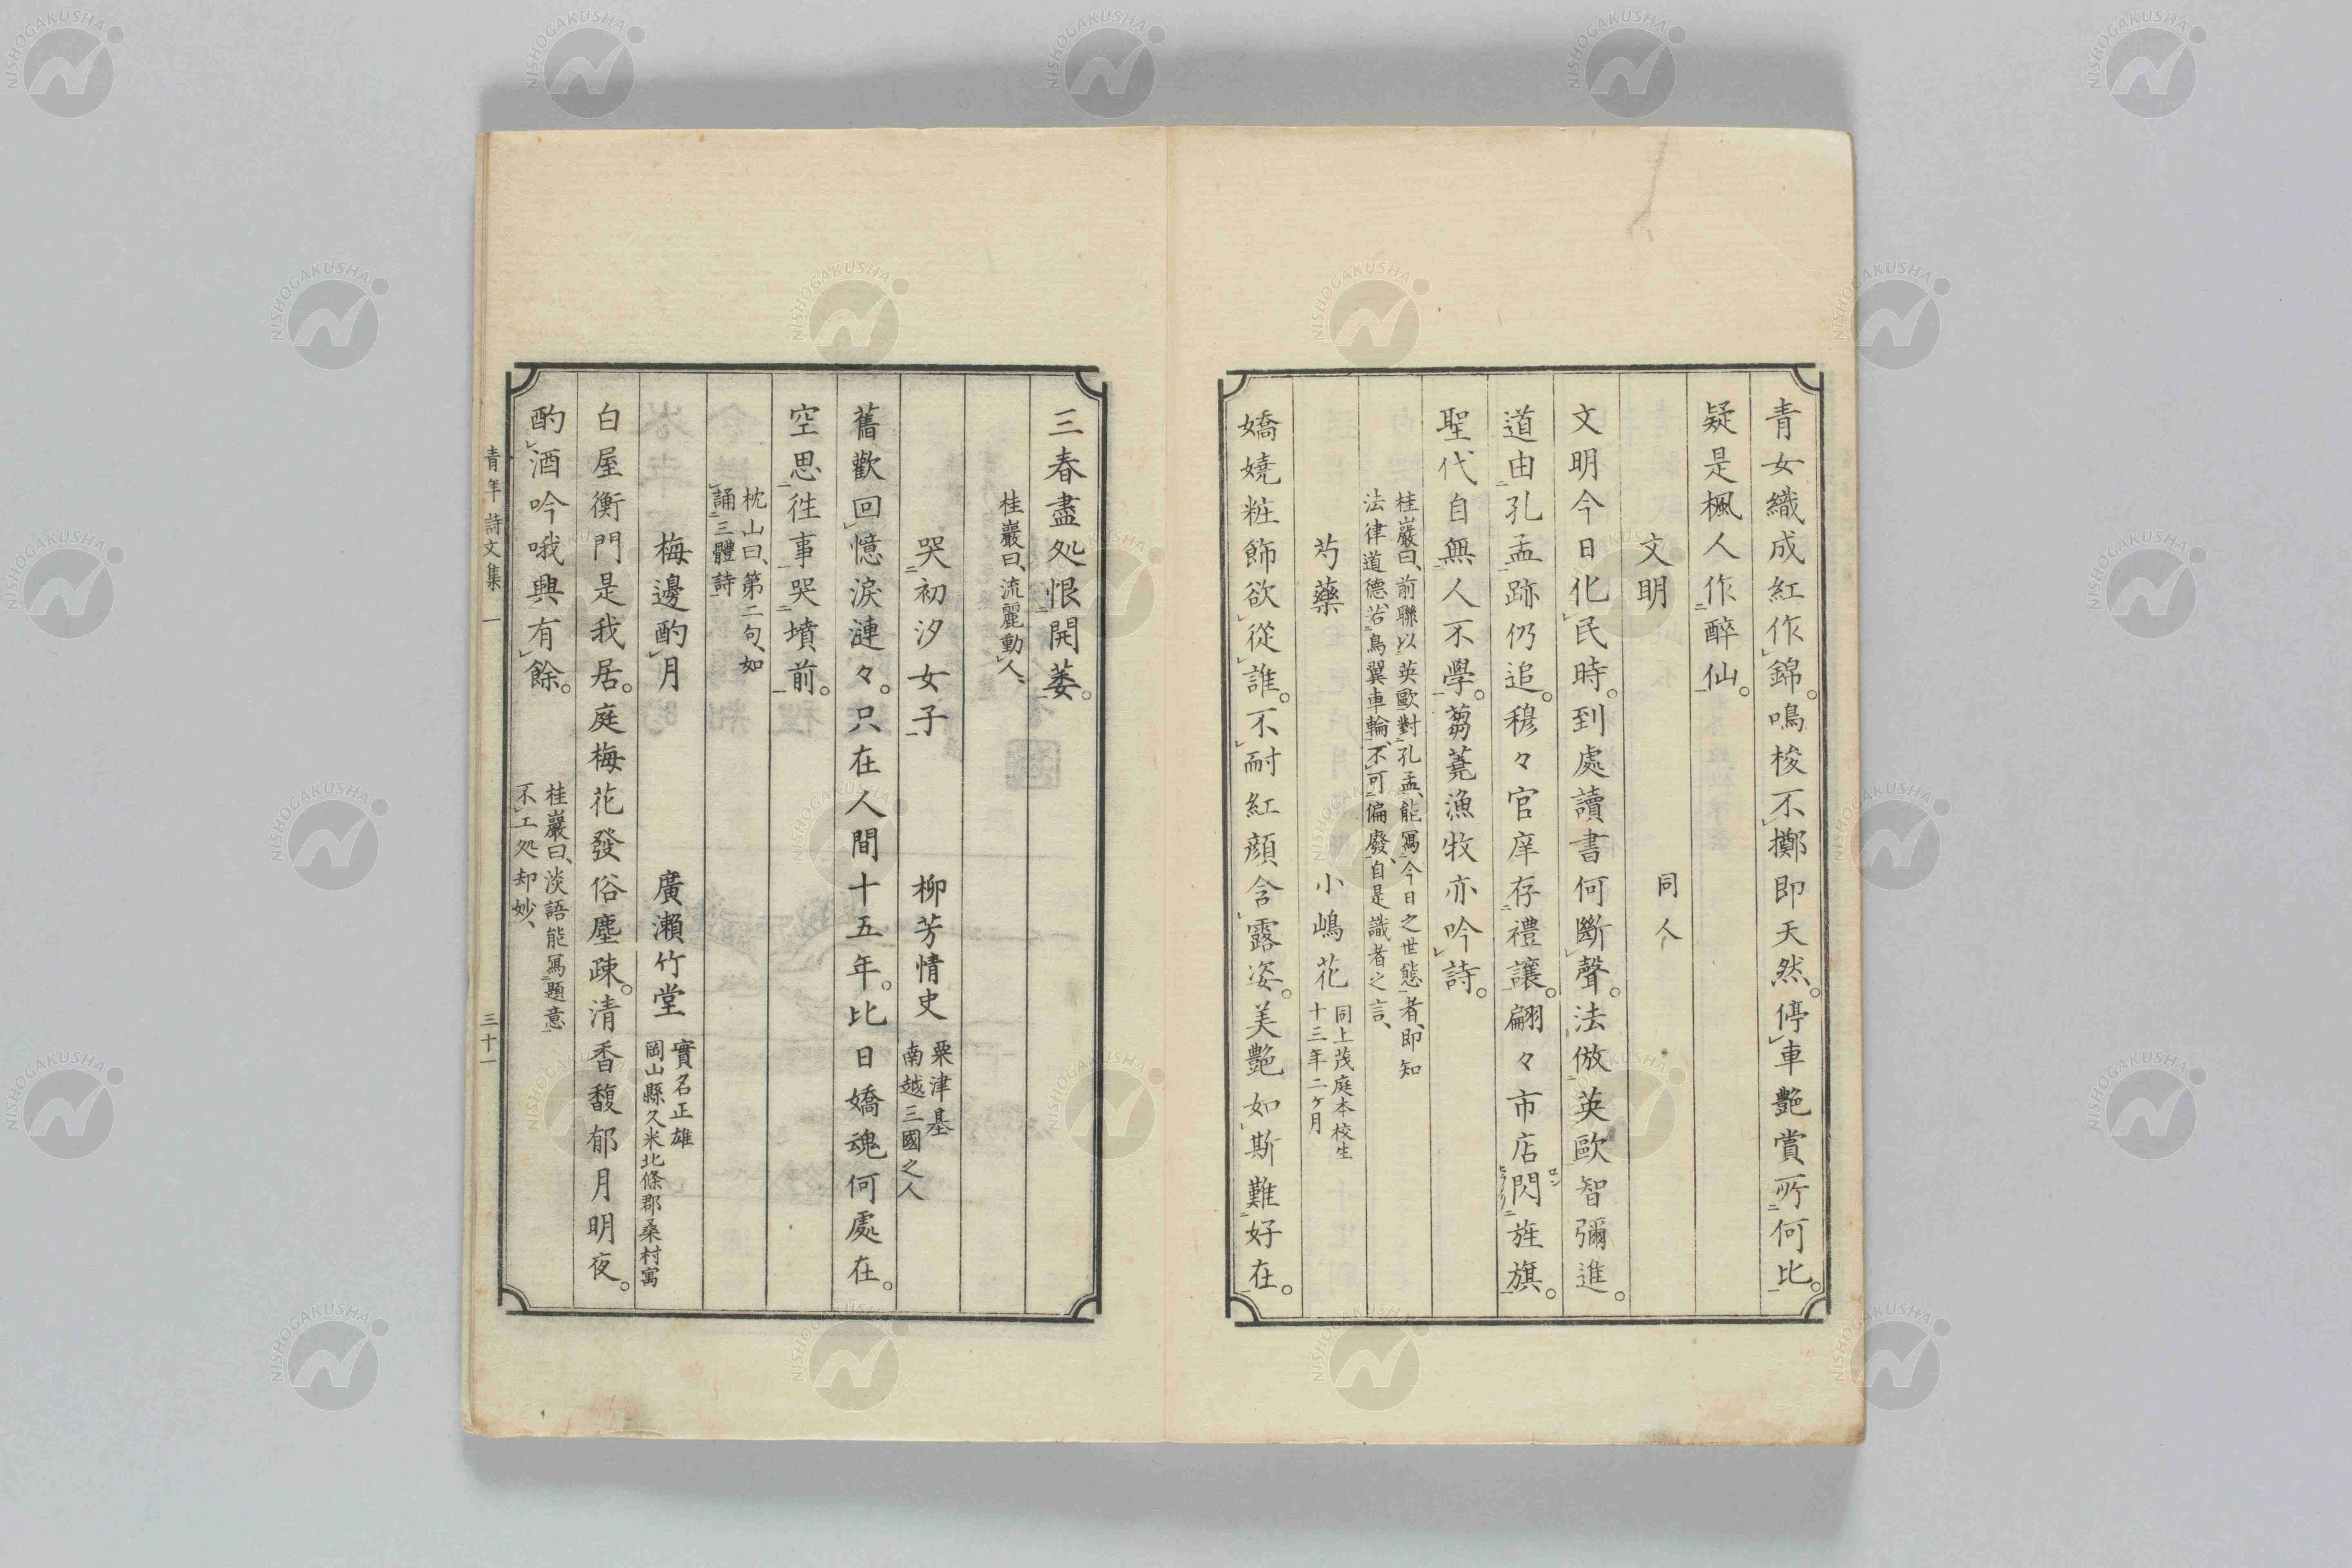 青女織成紅作錦。鳴梭不擲即天然。停車艷賞所何比。
疑是楓人作醉仙。
文明　同人
文明今日化民時。到處讀書何斷聲。法倣英歐智彌進。
道由孔孟跡仍追。穆々官庠存禮讓。翩々市店閃旌旗。
聖代自無人不學。蒭蕘漁牧亦吟詩。
桂巖曰、前聯以英歐對孔孟、能寫今日之世態者、即知
法律道德、若鳥翼車輪、不可偏廢、自是識者之言、
芍藥　小嶋花　同上茂庭本校生
十三年二ヶ月
嬌嬈粧飾欲從誰。不耐紅顏含露姿。美艷如斯難好在。
三春盡処恨開萎。
桂巖曰、流麗動人、
哭初汐女子　柳芳情史　粟津基
南越三國之人
舊歡回憶淚漣々。只在人間十五年。比日嬌魂何處在。
空思徃事哭墳前。
枕山曰、第二句、如
誦三體詩
梅邊酌月　廣瀨竹堂　實名正雄
岡山縣久米北條郡桑村寓
白屋衡門是我居。庭梅花發俗塵疎。清香馥郁月明夜。
酌酒吟哦興有餘。
桂巖曰、淡語能寫題意
不工処却妙、
青年詩文集　一　三十一
NISHOGAKUSHA